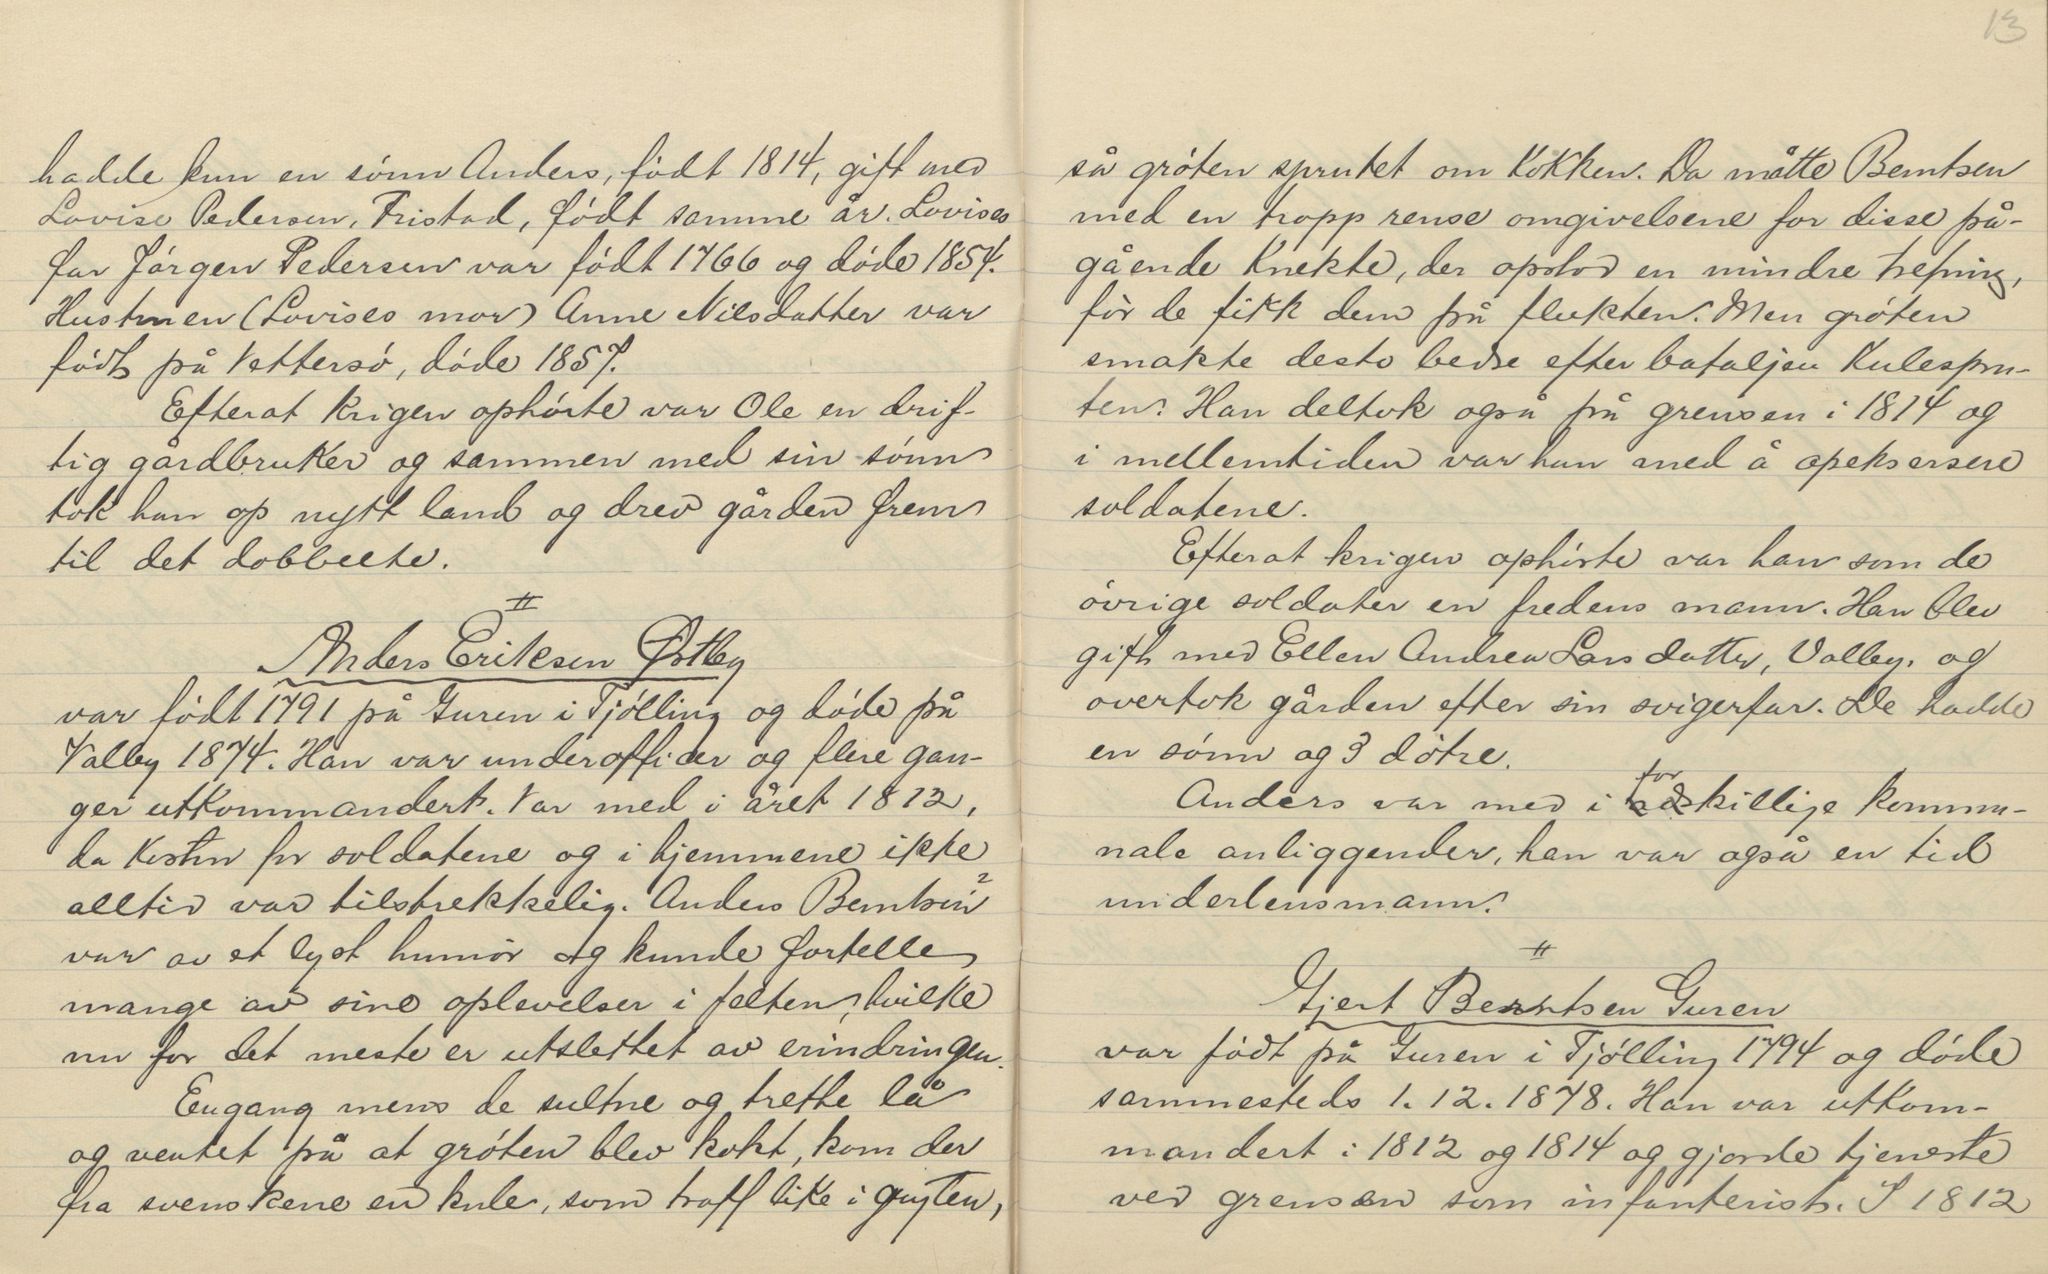 hadde kun en sónn Anders, født 1814, gift med
Lovise Pedersen, Fristad, født samme år. Lovises
far Jórgen Pedersen var født 1766 og dóde 1854.
Hustruen (Lovises mor) Anne Nilsdatter var
født på Vettersó, dóde 1857.
Efterat krigen ophórte var Ole en drif-
tig gårdbruker og sammen med sin sónn
tok han op nytt land og drev gården frem
til det dobbelte.
II
Anders Eriksen Østby
var fódt 1791 på Guren i Tjólling og dóde på
Valby 1874. Han var underofficer og flere gan-
ger utkommandert. Var med i året 1812,
da kosten for soldatene og i hjemmene ikke
alltid var tilstrekkelig. Anders Berntsen
var av et lyst humór og kunde fortelle
mange av sine oplevelser i felten, hvilke
nu for det meste er utslettet av erindringen.
Engang mens de sultne og trette lå
og ventet på at gróten blev kokt, kom der
fra svenskene en kule, som traff like i gryten,
13
så gróten sprutet om kokken. Da måtte Berntsen
med en tropp rense omgivelsene for disse på-
gående knekte, der opstod en mindre trefning,
fór de fikk dem på flukten. Men gróten
smakte desto bedre efter bataljen Kulespru-
ten. Han deltok også på grensen i 1814 og
i mellemtiden var han med å opeksersere
soldatene.
Efterat krigen ophórte var han som de
óvrige soldater en fredens mann. Han blev
gift med Ellen Andrea Larsdatter, Valby, og
overtok gården efter sin svigerfar. De hadde
en sónn og 3 dótre.
Anders var med i forskillige kommu-
nale anliggender, han var også en tid
underlensmann.
II
Gjert Berntsen Guren
var fódt på Guren i Tjólling 1794 og dóde
sammesteds 1. 12. 1878. Han var utkom-
mandert i 1812 og 1814 og gjorde tjeneste
ved grensen som infanterist. I 1812